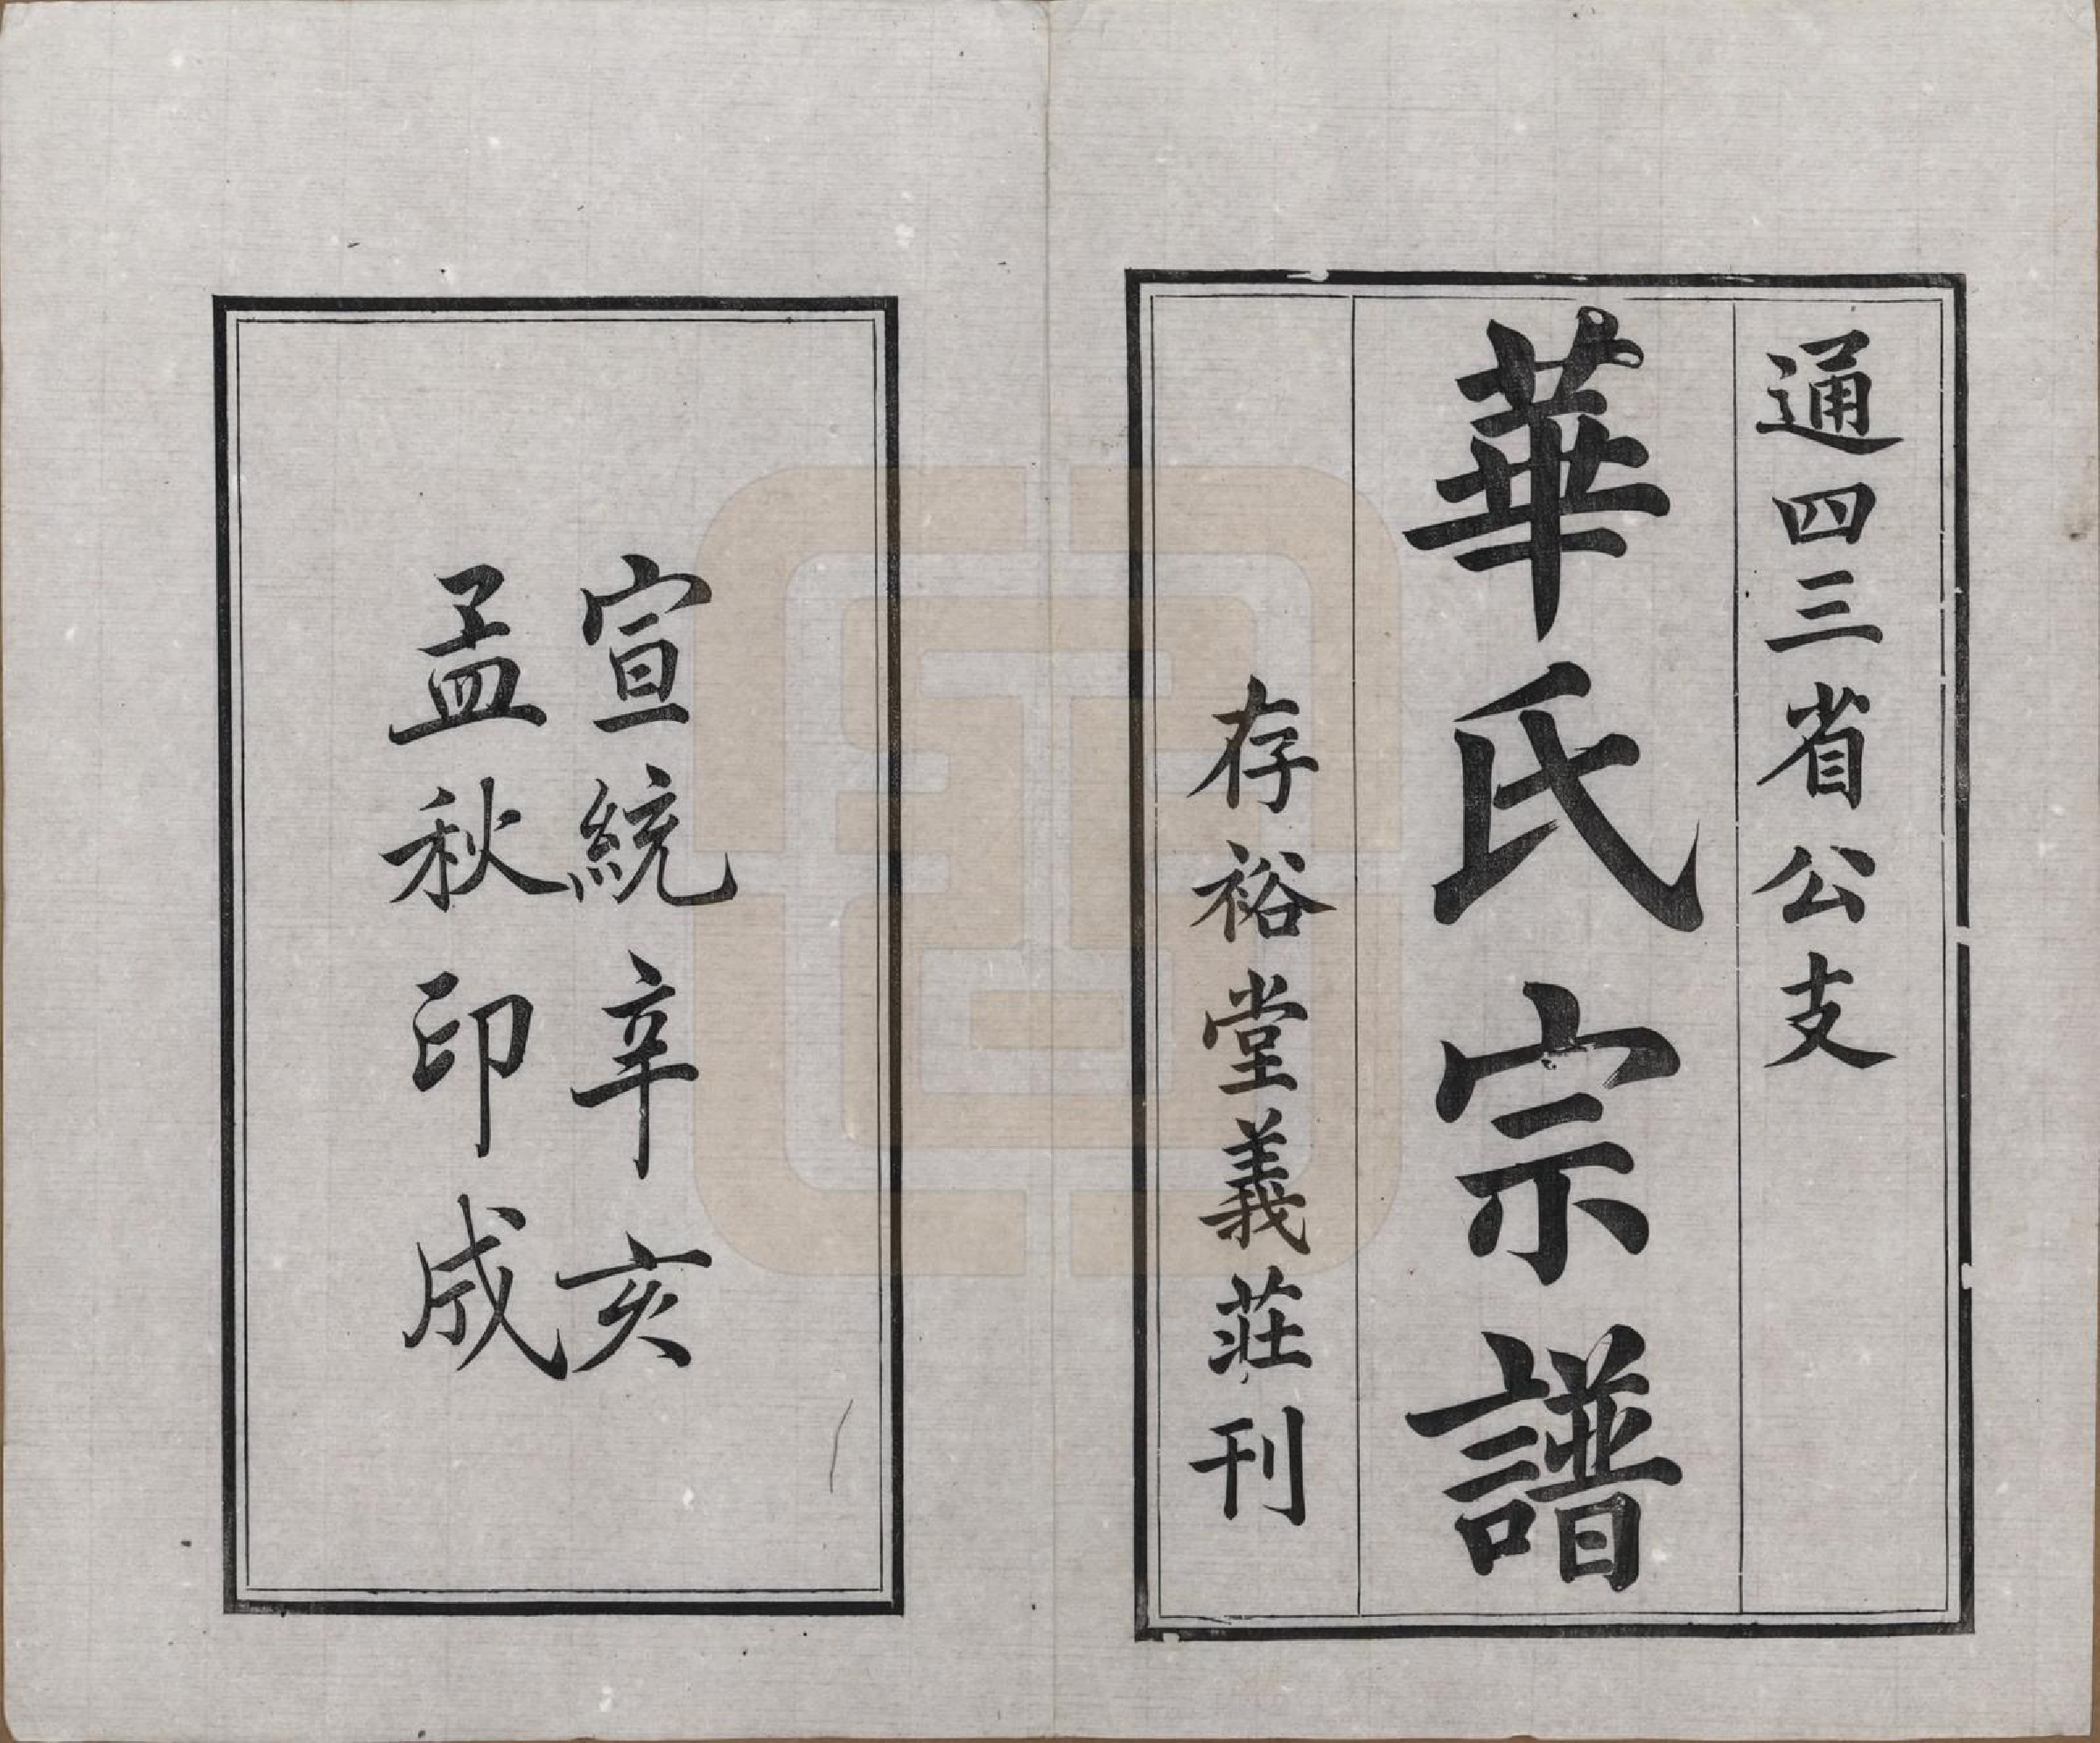 通四三省公支
華氏宗譜
存裕堂義莊刊
宣統辛亥
孟秋印成